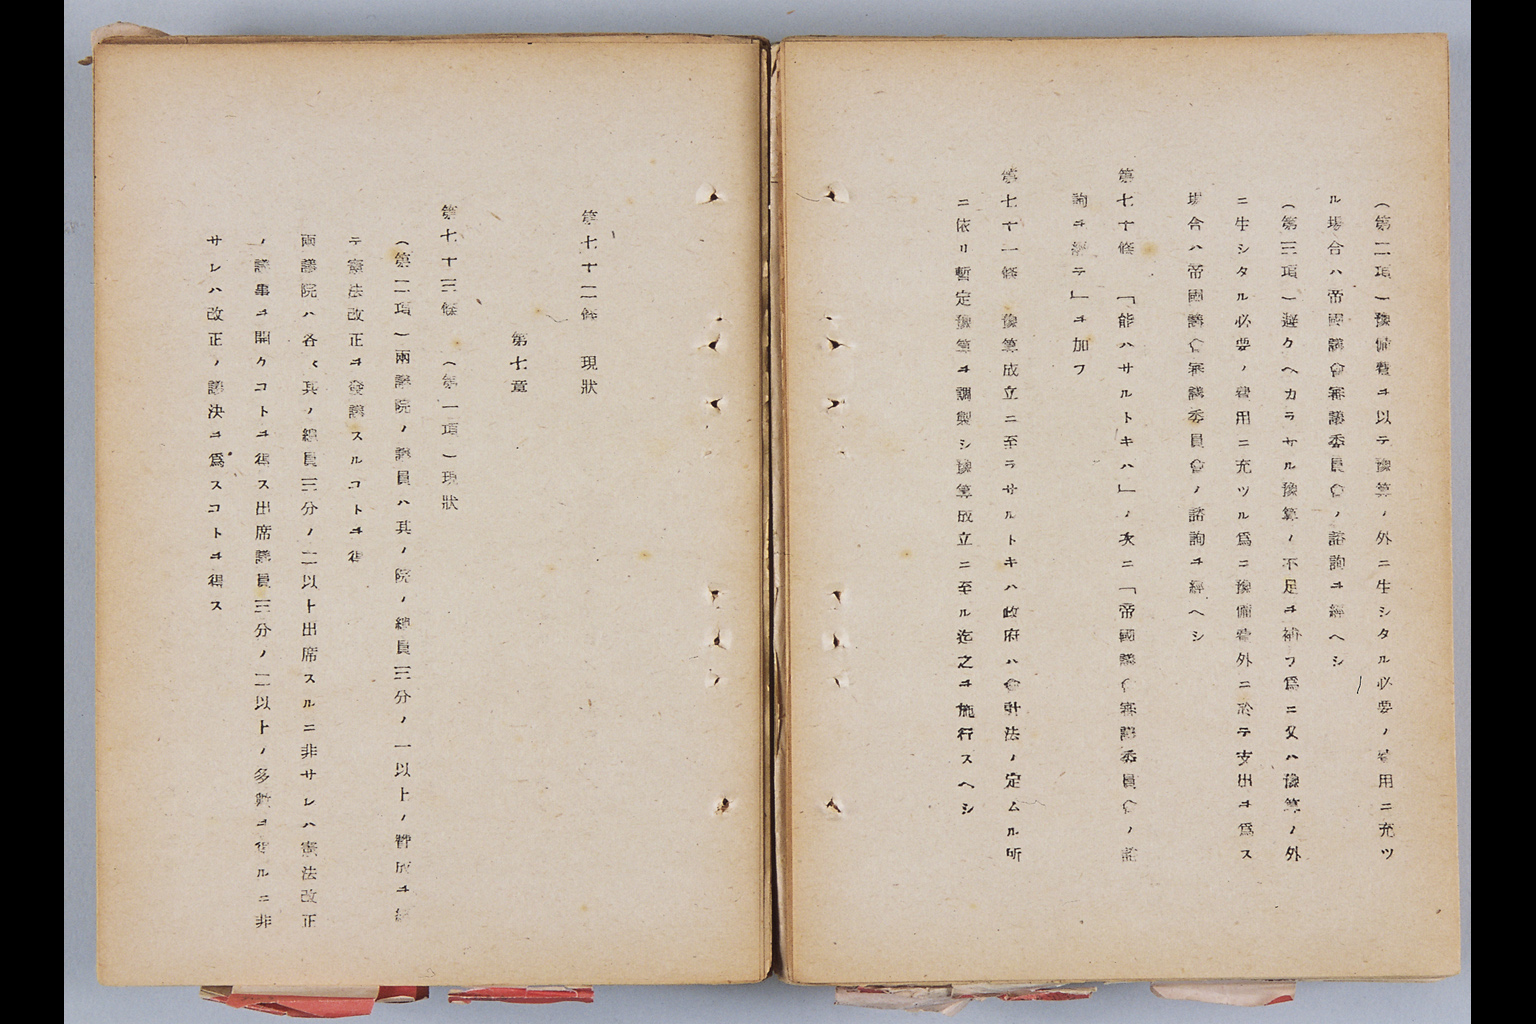 （第二項）豫備費ヲ以テ豫算ノ外ニ生シタル必要ノ費用ニ充ツ
ル場合ハ帝國議會審議委員會ノ諮詢ヲ經ヘシ
（第三項）避クヘカラサル豫算ノ不足ヲ補フ爲ニ又ハ豫算ノ外
ニ生シタル必要ノ費用ニ充ツル爲ニ豫備費外ニ於テ支出ヲ爲ス
場合ハ帝國議會審議委員會ノ諮詢ヲ經ヘシ
第七十條　「能ハサルトキハ」ノ次ニ「帝國議會審議委員會ノ諮
詢ヲ經テ」ヲ加フ
第七十一條　豫算成立ニ至ラサルトキハ政府ハ會計法ノ定ムル所
ニ依リ暫定豫算ヲ調製シ豫算成立ニ至ル迄之ヲ施行スヘシ
第七十二條　現狀
第七章
第七十三條　（第一項）現狀
（第二項）兩議院ノ議員ハ其ノ院ノ總員三分ノ一以上ノ贊成ヲ經
テ憲法改正ヲ發議スルコトヲ得
兩議院ハ各〻其ノ總員三分ノ二以上出席スルニ非サレハ憲法改正
ノ議事ヲ開クコトヲ得ス出席議員三分ノ二以上ノ多數ヲ得ルニ非
サレハ改正ノ議決ヲ爲スコトヲ得ス